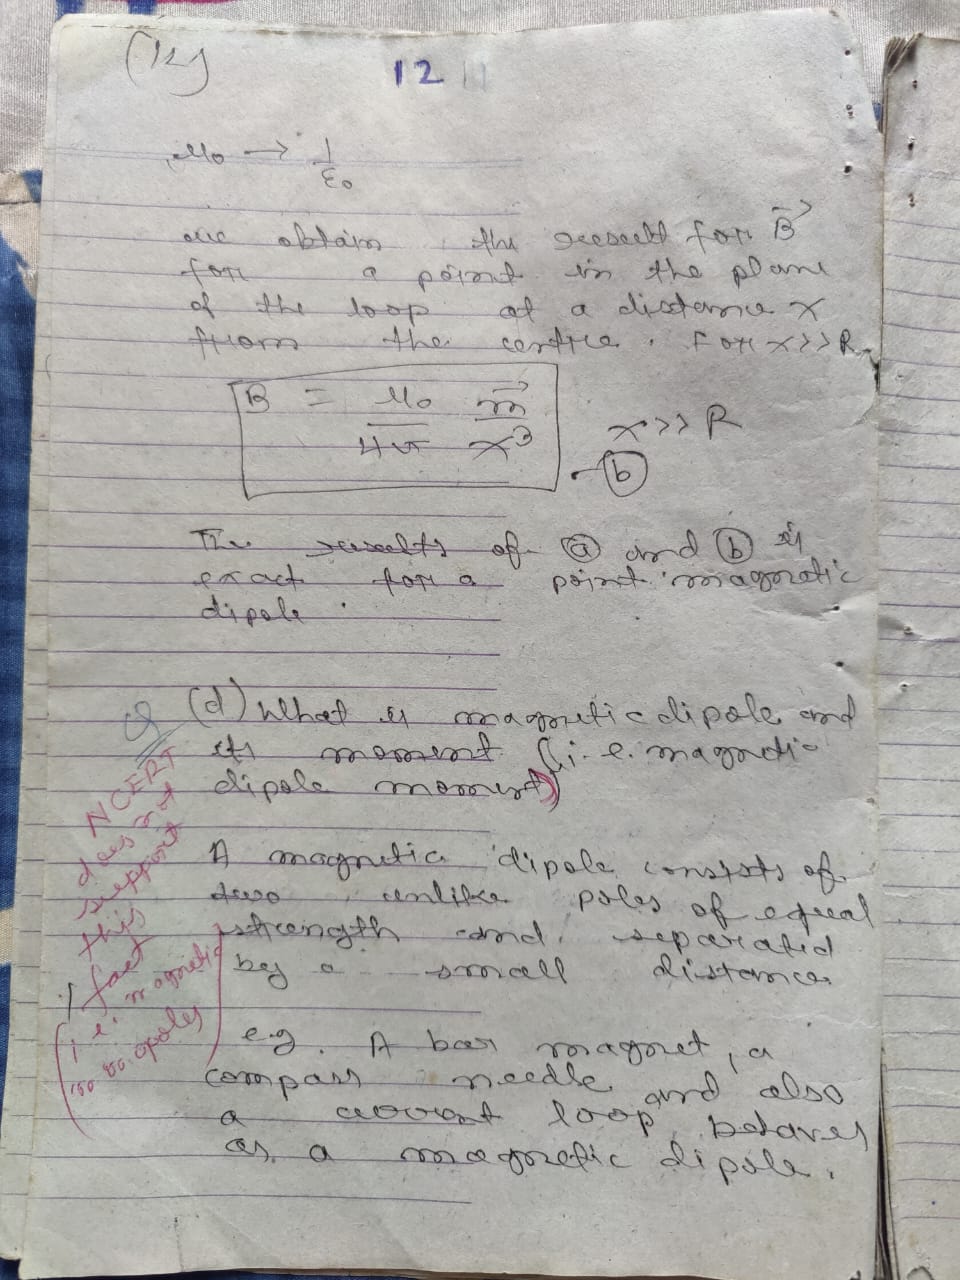 (12)
12
μ₀ → 1/ε₀
we obtain the result for B⃗
for a point in the plane
of the loop at a distance x
from the centre. For x>>R
B = μ₀/4π m⃗/x³
x>>R
- (b)
The results of (a) and (b) is
exact for a point magnetic
dipole.
Q (d) What is magnetic dipole and
its moment (i.e. magnetic
dipole moment)
NCERT
does not
support
this
fact
(i.e. magnetic
monopoles)
A magnetic dipole consists of
two unlike poles of equal
strength and separated
by a small distance.
e.g. A bar magnet, a
compass needle and also
a current loop behaves
as a magnetic dipole.